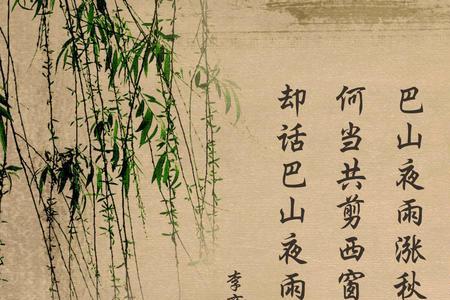 巴山夜雨涨秋
何当共剪西窗
却话巴山夜雨
李